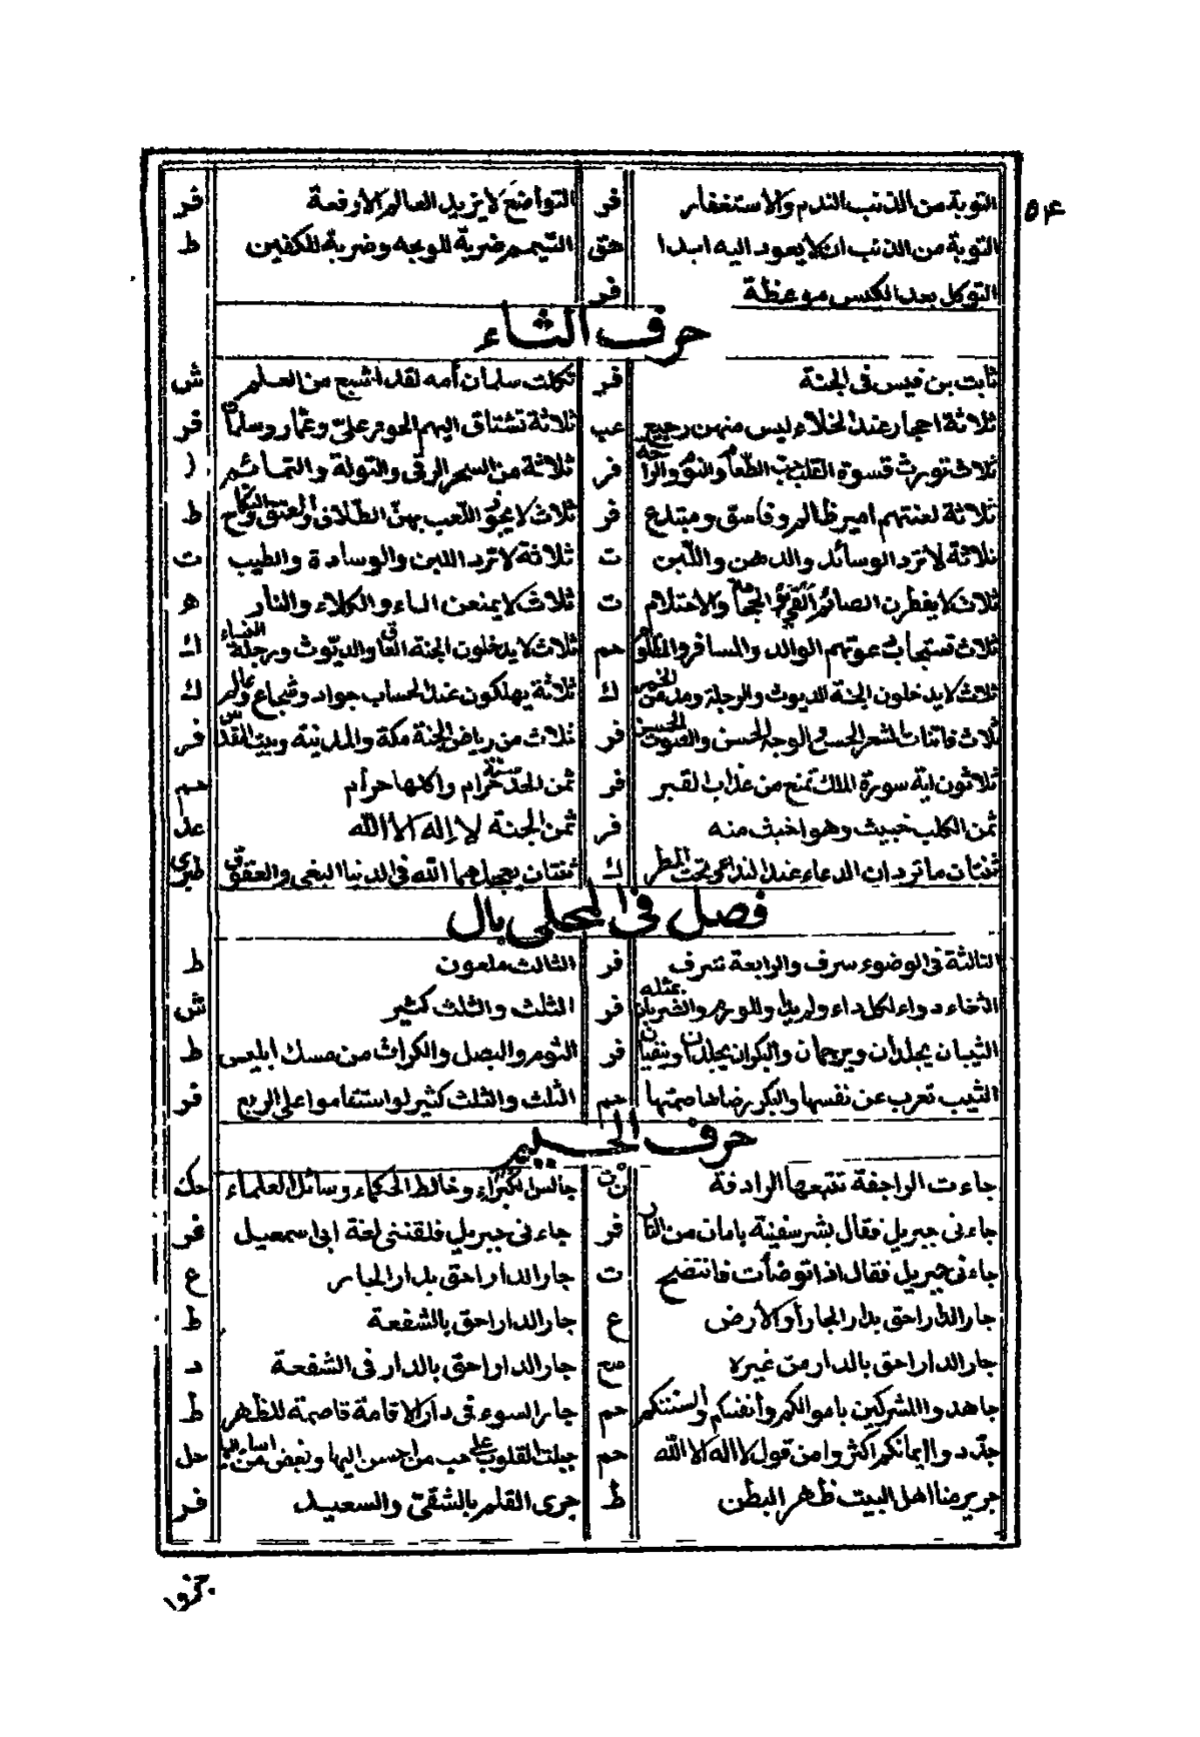 ٥٤
التوبة من الذنب الندم والاستغفار فر التواضع لا يزيد العالم الا رفعة فر
التوبة من الذنب ان لا يعود اليه ابدا هق التيمم ضربة للوجه وضربة للكفين ط
التوكل بعد الكيس موعظة فر
حرف الثاء
ثابت بن قيس فى الجنة فر ثكلت سلمان أمه لقد اشبع من العلم ش
ثلاثة احجار عند الخلاء ليس منهن رجيع عب ثلاثة تشتاق اليهم الحور علىّ وعمّار وسلمان فر
ثلاث تورث قسوة القلب حب الطعام والنوم والراحة فر ثلاثة من السحر الرقى والتولة والتمائم
ثلاثة لعنتهم امير ظالم وفاسق ومبتدع فر ثلاث لا يجوز اللعب بهنّ الطلاق والعتق والنكاح ط
ثلاثة لا ترد الوسائد والدهن واللّبن ت ثلاثة لا ترد اللبن والوسادة والطيب ت
ثلاث لا يفطرن الصائم القىء والحجامة والاحتلام ت ثلاث لا يمنعن الماء والكلاء والنار ه
ثلاث تستجاب دعوتهم الوالد والمسافر والمظلوم حم ثلاث لا يدخلون الجنة العاق والديّوث ورجلة النساء ك
ثلاث لا يدخلون الجنة الديوث والرجلة ومدمن الخمر ك ثلاثة يهلكون عند الحساب جواد وشجاع وعالم ك
ثلاث فاتنات الشعر الحسن والوجه الحسن والصوت الحسن فر ثلاث من رياض الجنة مكة والمدينة وبيت المقدس فر
ثلاثون اية سورة الملك تمنع من عذاب القبر فر ثمن حرام واكلها حرام حم
ثمن الكلب خبيث وهو اخبث منه فر ثمن الجنة لا إله الا الله عد
ثنتان ما تردان الدعاء عند النداء وتحت المطر ك ثنتان يعجلهما الله فى الدنيا البغى والعقوق طبرى
فصل فى المحلى بال
الثالثة فى الوضوء سرف والرابعة سرف فر الثالث ملعون ط
الثفاء دواء لكل داء فر الثلث والثلث كثير ش
الثيبان يجلدان ويرجمان والبكران يجلدان وينفيان فر الثوم والبصل والكراث من مسك ابليس ط
الثيب تعرب عن نفسها والبكر رضاها صمتها حم الثلث والثلث كثير لو استقاموا على الربع فر
حرف الجيم
جاءت الراجفة تتبعها الرادفة ن ت جالس الكبراء وخالط الحكماء وسائل العلماء حك
جاءنى جبريل فقال بشر سفينة بامان من النار فر جاءنى جبريل فلقننى لغة ابى اسمعيل فر
جاءنى جبريل فقال اذا توضأت فانتضح ت جار الدار احق بدار الجار ع
جار الدار احق بدار الجار أو الأرض ع جار الدار احق بالشفعة ط
جار الدار احق بالدار من غيره صح جار الدار احق بالدار فى الشفعة د
جاهدوا المشركين باموالكم وأنفسكم والسنتكم حم جار السوء فى دار الاقامة قاصمة للظهر ط
جدّدوا ايمانكم اكثروا من قول لا اله الا الله حم جبلت القلوب على حب من احسن اليها وبغض من اساء اليها حل
جرير منا اهل البيت ظهر البطن ط جرى القلم بالشقىّ والسعيد فر
جزوا